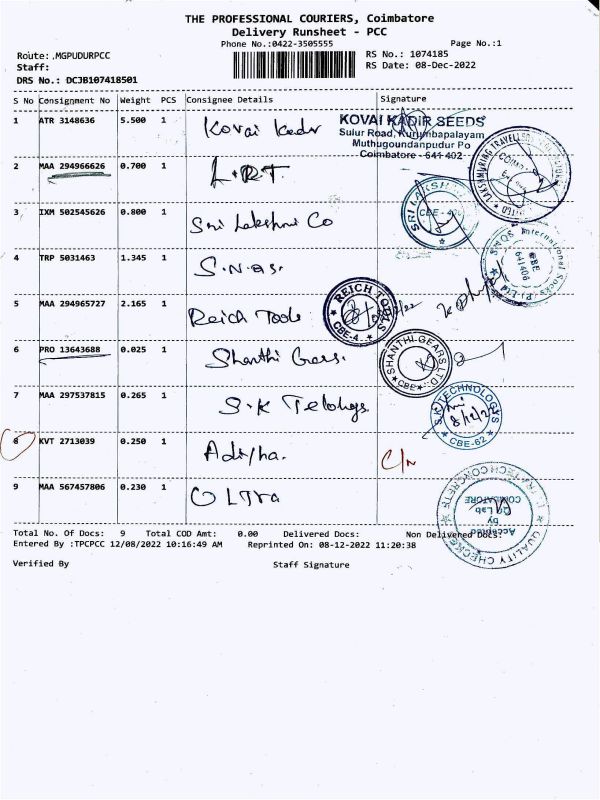 THE PROFESSIONAL COURIERS, Coimbatore
Delivery Runsheet - PCC
Phone No.:0422-3505555
Page No.:1
Route: .MGPUDURPCC
RS No.: 1074185
Staff:
RS Date: 08-Dec-2022
DRS No.: DCJB107418501
S No Consignment No Weight PCS Consignee Details Signature
1 ATR 3148636 5.500 1 Kovai Kadir
KOVAI KADIR SEEDS
Sulur Road, Kurumbapalayam
Muthugoundanpudur Po
Coimbatore - 641 402
2 MAA 294966626 0.700 1 L.R.T.
3 IXM 502545626 0.800 1 Sri Lakshmi Co
SRI LAKSHMI
CBE - 402
4 TRP 5031463 1.345 1
SMQS International Socks (P) Ltd
CBE
641406
5 MAA 294965727 2.165 1 Reich Tools
REICH TOOLS
CBE-4
6 PRO 13643688 0.025 1 Shanthi Gears.
SHANTHI GEARS LTD.
CBE
7 MAA 297537815 0.265 1 S.K Telohgs
S.K TECHNOLOGYS
8/12/22
CBE-62
8 KVT 2713039 0.250 1
C/n
9 MAA 567457806 0.230 1
QUALITY CHECKED
Accepted
by
Lab
COIMBATORE
Total No. Of Docs: 9 Total COD Amt: 0.00 Delivered Docs: Non Delivered Docs:
Entered By :TPCPCC 12/08/2022 10:16:49 AM Reprinted On: 08-12-2022 11:20:38
Verified By Staff Signature